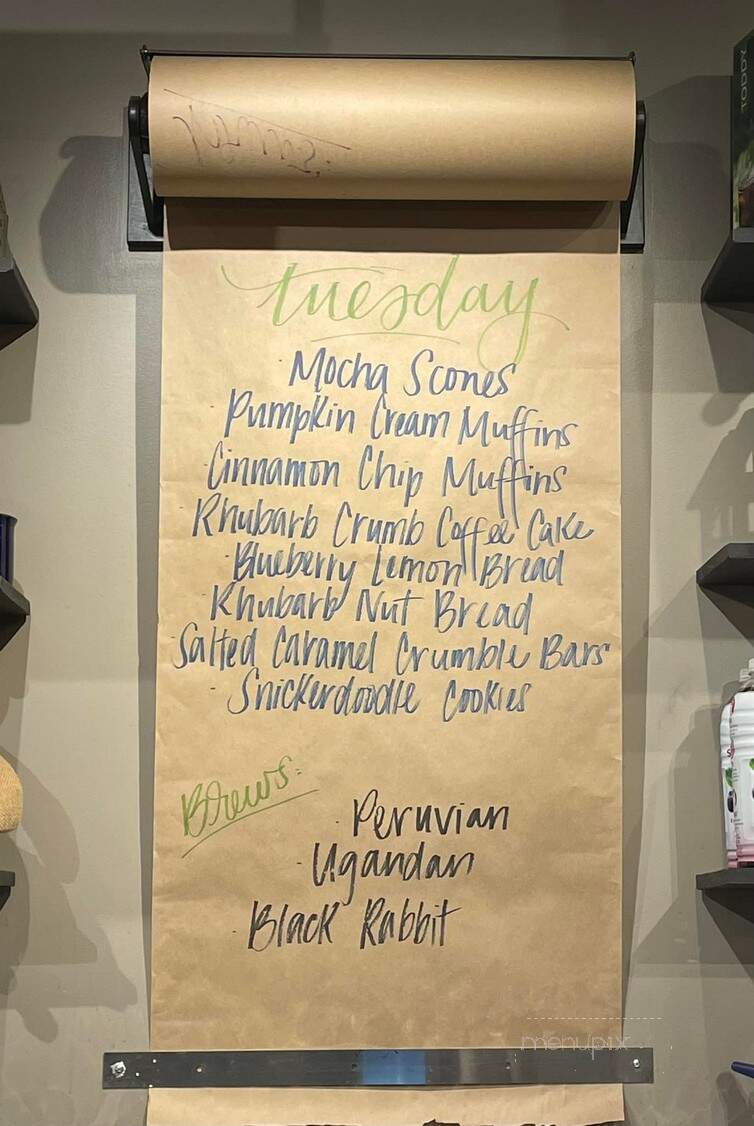 tuesday
- Mocha Scones
- Pumpkin Cream Muffins
- Cinnamon Chip Muffins
- Rhubarb Crumb Coffee Cake
- Blueberry Lemon Bread
- Rhubarb Nut Bread
- Salted Caramel Crumble Bars
- Snickerdoodle Cookies
Brews:
- Peruvian
- Ugandan
- Black Rabbit
menupix